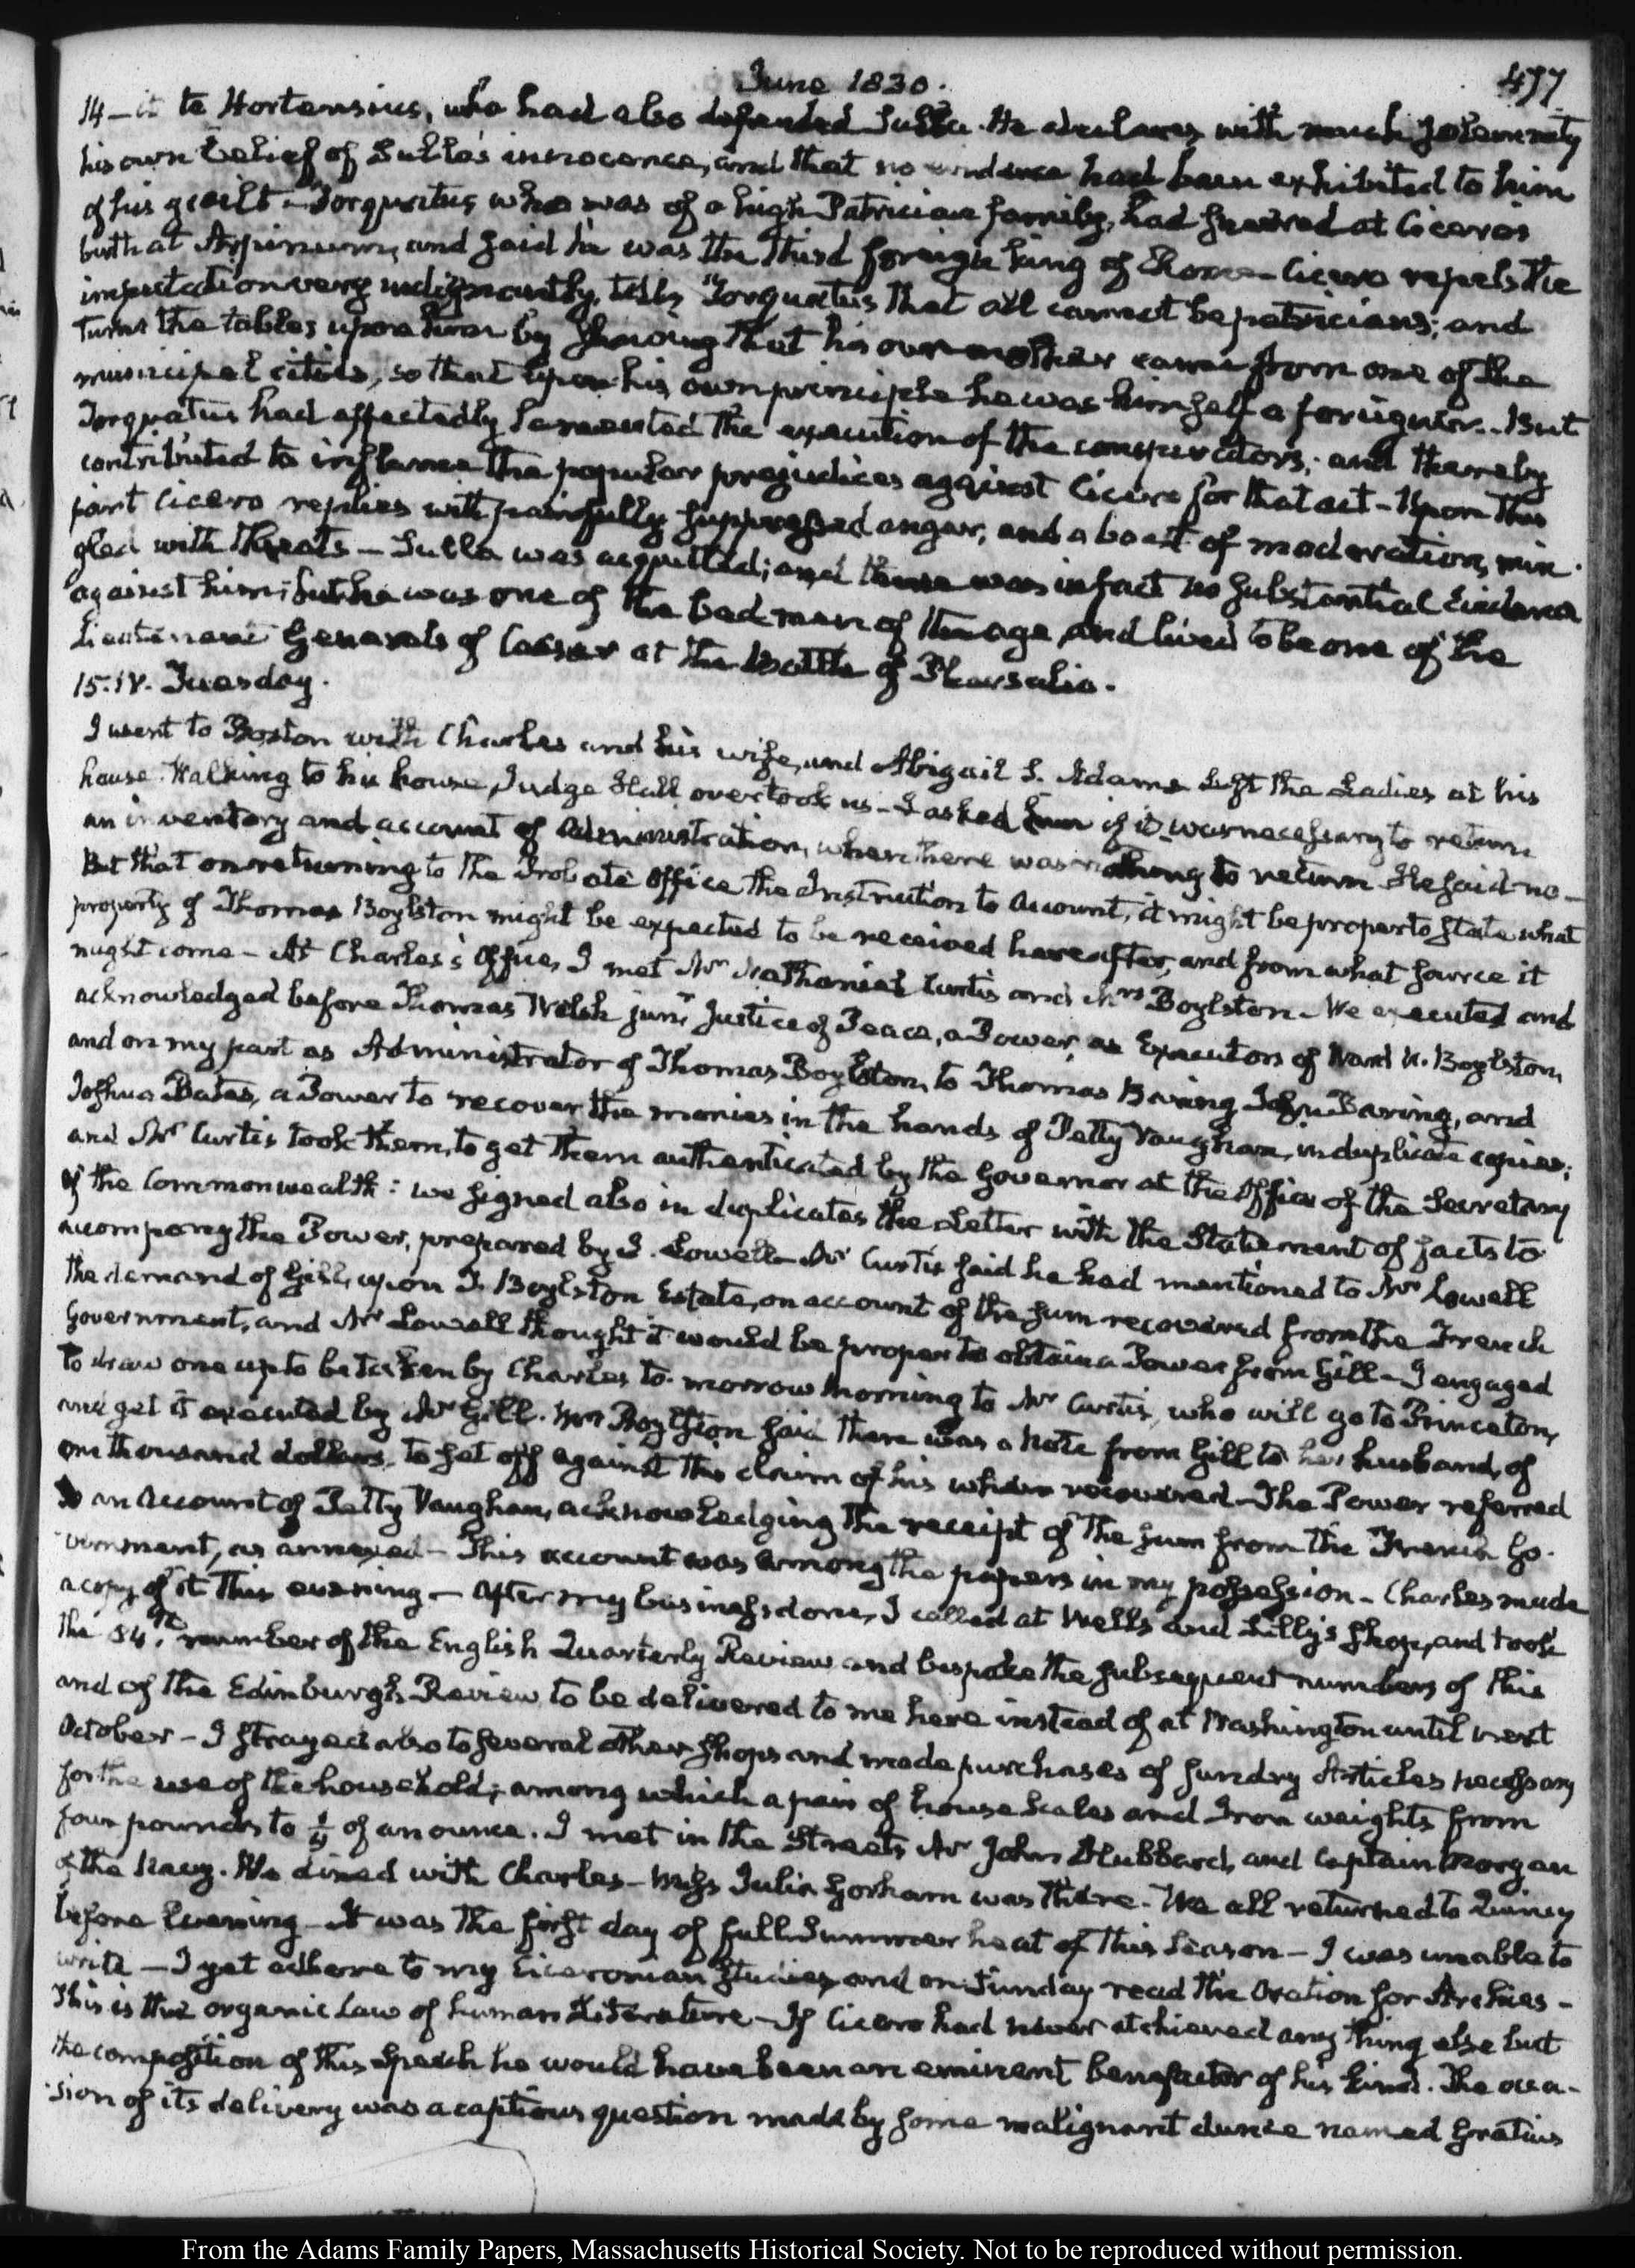 June 1830.
477
14 — it to Hortensius, who had also defended Sulla. He declares with much solemnity
his own belief of Sulla's innocence, and that no evidence had been exhibited to him
of his guilt — Torquatus, who was of a high Patrician family, had sneered at Ciceros
birth at Arpinum, and said he was the third foreign king of Rome — Cicero repels the
imputation very indignantly, tells Torquatus that all cannot be patricians; and
turns the tables upon him by shewing that his own mother came from one of the
municipal cities, so that upon his own principle he was himself a foreigner. But
Torquatus had affectedly lamented the execution of the conspirators; and thereby
contributed to inflame the popular prejudices against Cicero for that act — Upon this
part Cicero replies with painfully suppressed anger, and a boast of moderation, min-
gled with threats — Sulla was acquitted; and there was in fact no substantial evidence
against him; but he was one of the bad men of the age, and lived to be one of the
Lieutenant Generals of Caesar at the Battle of Pharsalia.
15. IV. Tuesday.
I went to Boston with Charles and his wife, and Abigail S. Adams left the Ladies at his
house. Walking to his house, Judge Hall overtook us — I asked him if it was necessary to return
an inventory and account of administration, when there was nothing to return He said no —
But that on returning to the Probate Office the Instruction to Account, it might be proper to state what
property of Thomas Boylston might be expected to be received hereafter, and from what source it
might come — At Charles's Office, I met Mr Nathaniel Curtis and Mrs Boylston — We executed and
acknowledged before Thomas Welsh junr Justice of Peace, a Power, as Executors of Ward N. Boylston,
and on my part as Administrator of Thomas Boylston, to Thomas Baring, John Baring, and
Joshua Bates, a Power to recover the monies in the hands of Petty Vaughan, in duplicate copies;
and Mr Curtis took them, to get them authenticated by the Governor at the Office of the Secretary
of the Commonwealth: we signed also in duplicates the Letter with the Statement of facts to
accompany the Power, prepared by J. Lowell — Mr Curtis said he had mentioned to Mr Lowell
the demand of Gill, upon T. Boylston Estate, on account of the sum recovered from the French
Government, and Mr Lowell thought it would be proper to obtain a Power from Gill — I engaged
to draw one up to be taken by Charles to-morrow morning to Mr Curtis, who will go to Princeton,
and get it executed by Mr Gill. Mrs Boylston said there was a Note from Gill to her husband, of
one thousand dollars, to set off against this claim of his when recovered — The Power referred
to an Account of Petty Vaughan, acknowledging the receipt of the sum from the French Go-
vernment, as annexed — This account was among the papers in my possession — Charles made
a copy of it this evening — After my business done, I called at Wells and Lilly's shop, and took
the 84th number of the English Quarterly Review and bespoke the subsequent numbers of this
and of the Edinburgh Review to be delivered to me here instead of at Washington until next
October — I strayed also to several other shops and made purchases of sundry Articles necessary
for the use of the household; among which a pair of house Scales and Iron weights from
four pounds to ¼ of an ounce. I met in the Streets Mr John Hubbard, and Captain Morgan
of the Navy. We dined with Charles — Miss Julia Gorham was there. We all returned to Quincy
before Evening — It was the first day of full Summer heat of this Season — I was unable to
write — I yet adhere to my Ciceronian Studies, and on Sunday read the Oration for Archias —
This is the organic Law of human Literature — If Cicero had never atchieved any thing else but
the composition of this Speech he would have been an eminent benefactor of his kind. The occa-
sion of its delivery was a captious question made by some malignant dunce named Gratius
From the Adams Family Papers, Massachusetts Historical Society. Not to be reproduced without permission.